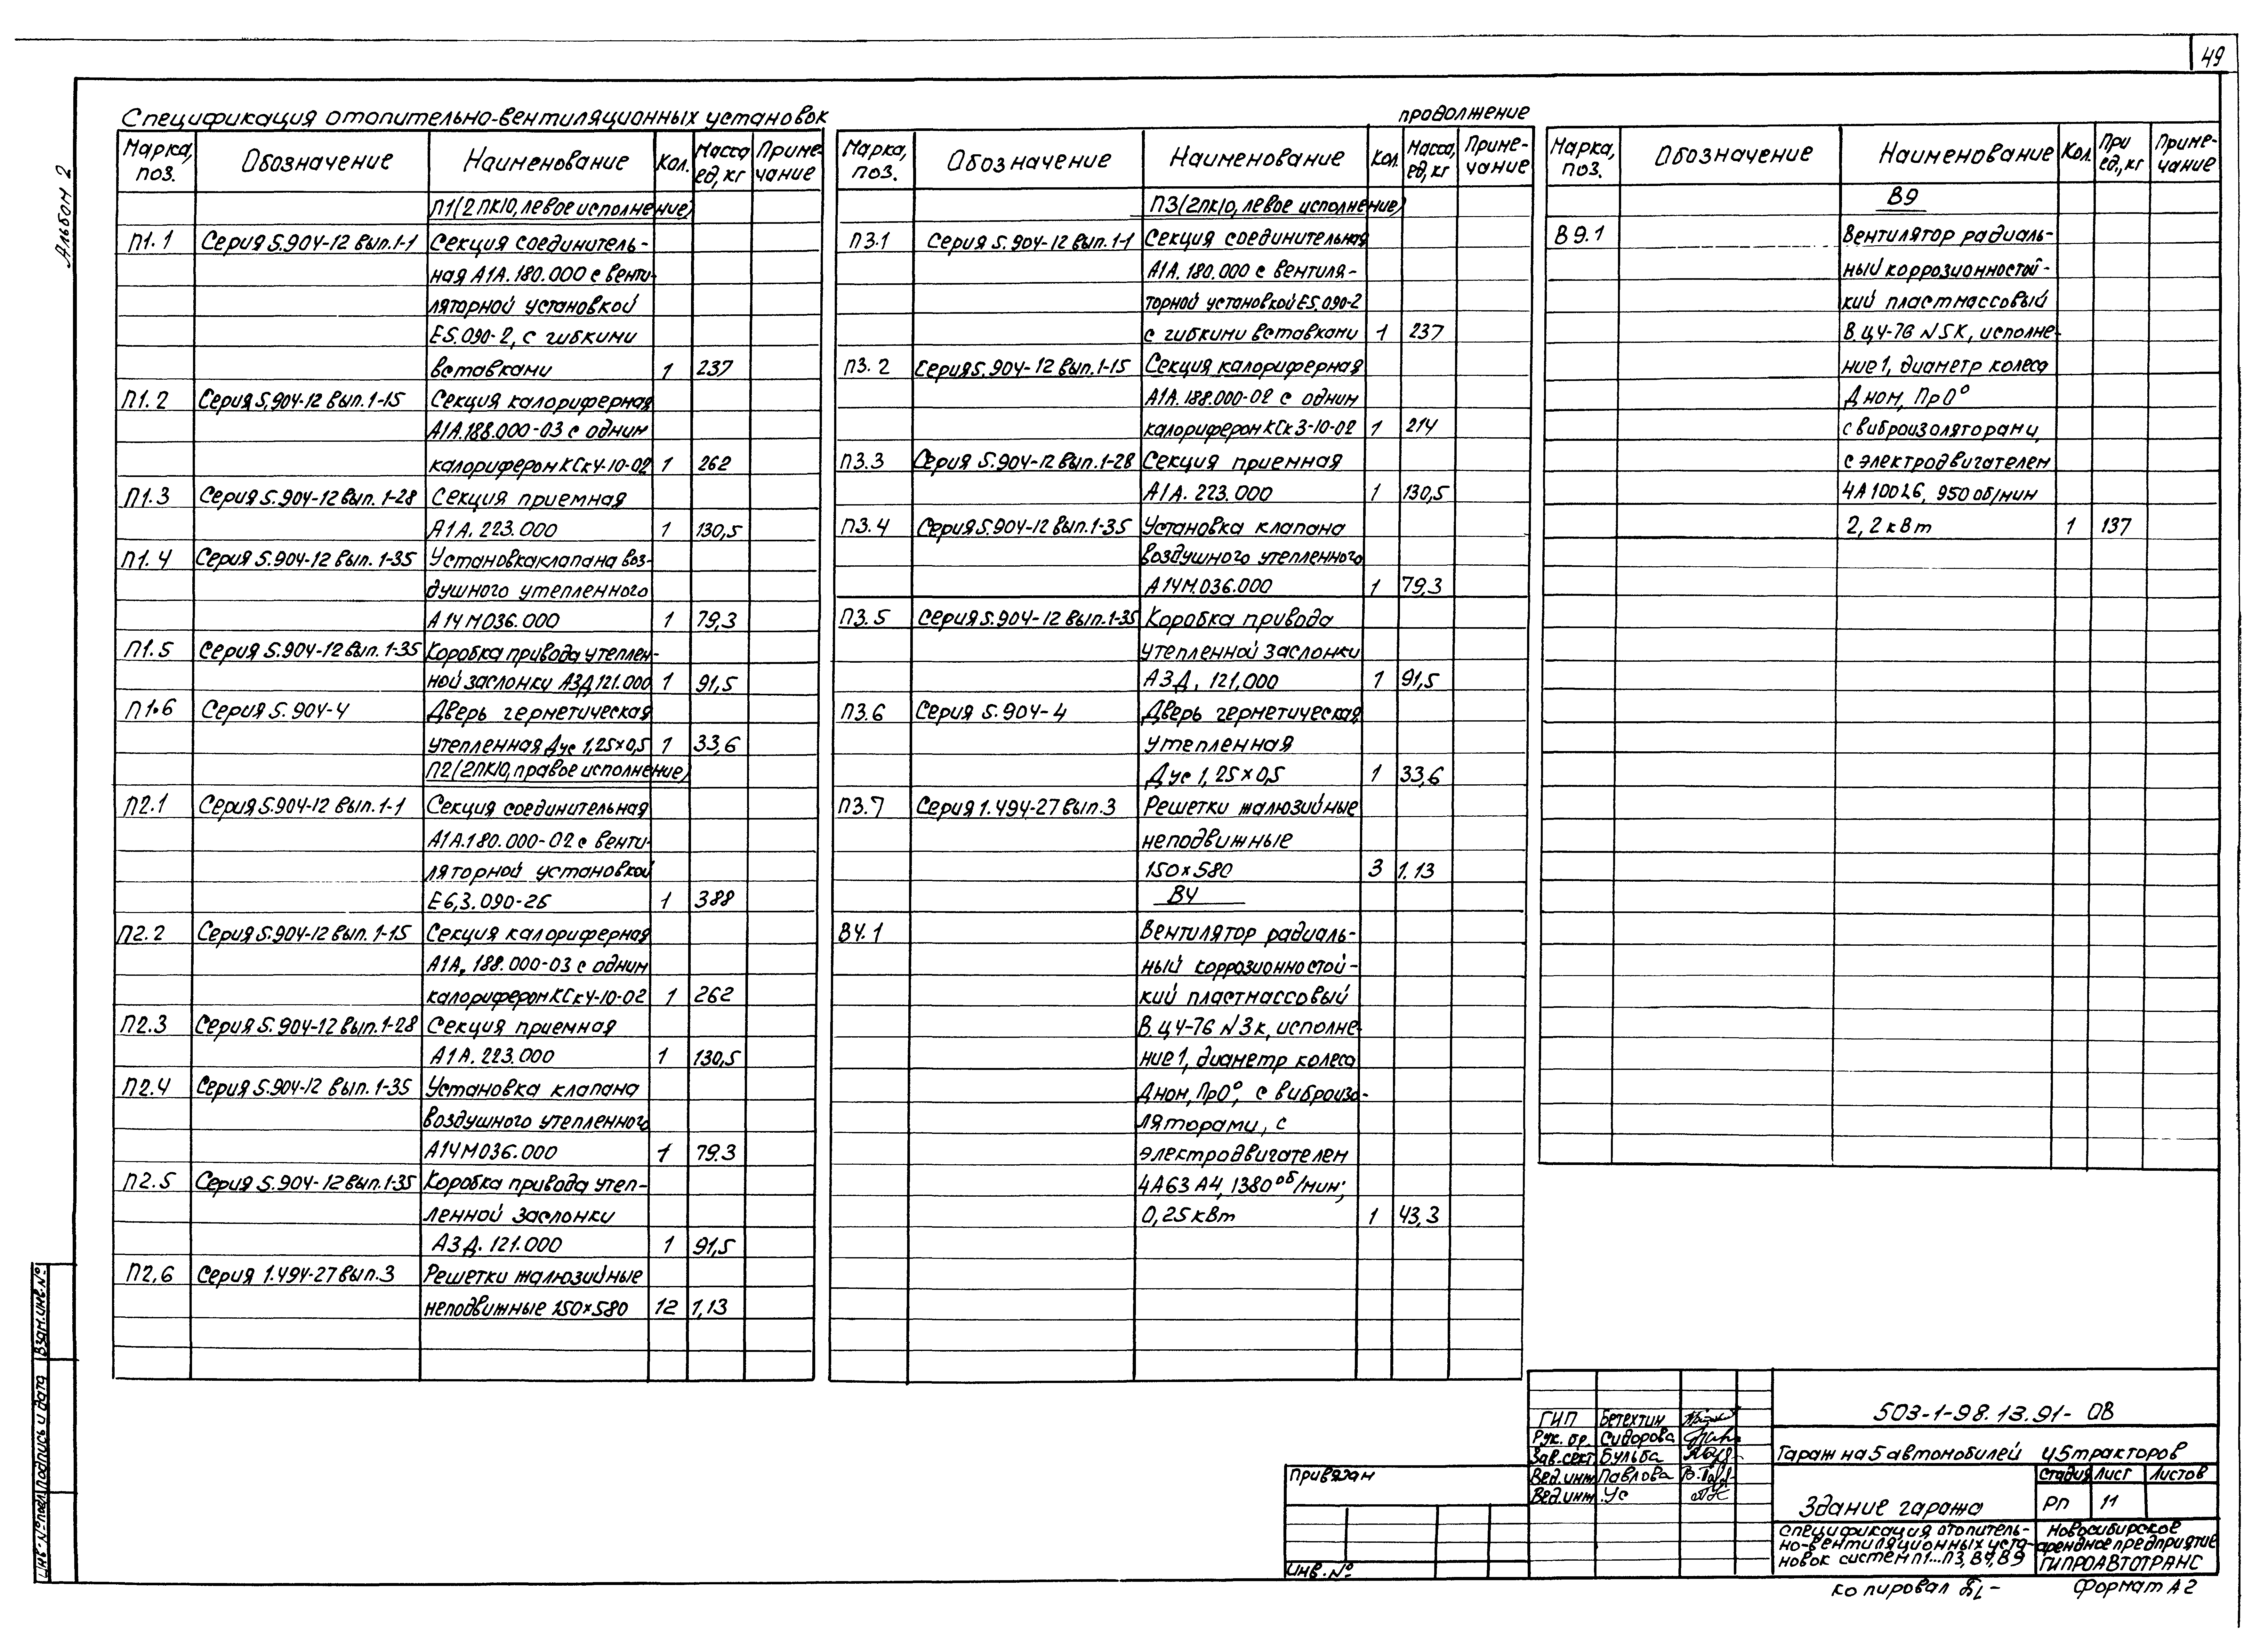 49
Альбом 2
Спецификация отопительно-вентиляционных установок
Марка, поз. Обозначение Наименование Кол. Масса ед, кг Приме-чание
П1(2ПК10, левое исполнение)
П1.1 Серия 5.904-12 вып.1-1 Секция соединитель-
ная А1А.180.000 с венти-
ляторной установкой
Е5.090-2, с гибкими
вставками 1 237
П1.2 Серия 5.904-12 вып.1-15 Секция калориферная
А1А.188.000-03 с одним
калорифером КСк4-10-02 1 262
П1.3 Серия 5.904-12 вып.1-28 Секция приемная
А1А.223.000 1 130,5
П1.4 Серия 5.904-12 вып.1-35 Установка клапана воз-
душного утепленного
А14М036.000 1 79,3
П1.5 Серия 5.904-12 вып.1-35 Коробка привода утеплен-
ной заслонки АЗД121.000 1 91,5
П1.6 Серия 5.904-4 Дверь герметическая
утепленная Дус 1,25×0,5 1 33,6
П2(2ПК10, правое исполнение)
П2.1 Серия 5.904-12 вып.1-1 Секция соединительная
А1А.180.000-02 с венти-
ляторной установкой
Е6,3.090-2б 1 388
П2.2 Серия 5.904-12 вып.1-15 Секция калориферная
А1А.188.000-03 с одним
калорифером КСк4-10-02 1 262
П2.3 Серия 5.904-12 вып.1-28 Секция приемная
А1А.223.000 1 130,5
П2.4 Серия 5.904-12 вып.1-35 Установка клапана
воздушного утепленного
А14М036.000 1 79.3
П2.5 Серия 5.904-12 вып.1-35 Коробка привода утеп-
ленной заслонки
АЗД.121.000 1 91,5
П2,6 Серия 1.494-27 вып.3 Решетки жалюзийные
неподвижные 150×580 12 1,13
продолжение
Марка, поз. Обозначение Наименование Кол. Масса, ед, кг Приме-чание
П3(2ПК10, левое исполнение)
П3.1 Серия 5.904-12 вып.1-1 Секция соединительная
А1А.180.000 с вентиля-
торной установкой Е5.090-2
с гибкими вставками 1 237
П3.2 Серия 5.904-12 вып.1-15 Секция калориферная
А1А.188.000-02 с одним
калорифером КСк3-10-02 1 214
П3.3 Серия 5.904-12 вып.1-28 Секция приемная
А1А.223.000 1 130,5
П3.4 Серия 5.904-12 вып.1-35 Установка клапана
воздушного утепленного
А14М.036.000 1 79,3
П3.5 Серия 5.904-12 вып.1-35 Коробка привода
утепленной заслонки
АЗД.121,000 1 91,5
П3.6 Серия 5.904-4 Дверь герметическая
утепленная
Дус 1,25×0,5 1 33,6
П3.7 Серия 1.494-27 вып.3 Решетки жалюзийные
неподвижные
150×580 3 1.13
В4
В4.1 Вентилятор радиаль-
ный коррозионностой-
кий пластмассовый
В.Ц4-76 N3к, исполне-
ние 1, диаметр колеса
Дном, Пр0°, с виброизо-
ляторами, с
электродвигателем
4А63А4, 1380 об/мин;
0,25 кВт 1 43,3
Марка, поз. Обозначение Наименование Кол. При ед., кг Приме-чание
В9
В9.1 Вентилятор радиаль-
ный коррозионностой-
кий пластмассовый
В.Ц4-76 N5К, исполне-
ние 1, диаметр колеса
Дном, Пр0°
с виброизоляторами,
с электродвигателем
4А100L6, 950 об/мин
2,2 кВт 1 137
ГИП Бетехтин
Рук. бр. Сидорова
Зав. сект Бульба
Вед.инж Павлова
Вед.инж Ус
503-1-98.13.91-ОВ
Гараж на 5 автомобилей и 5 тракторов
Здание гаража
Стадия Лист Листов
Рп 11
Спецификация отопитель-
но-вентиляционных уста-
новок систем П1...П3, В4, В9
Новосибирское
арендное предприятие
ГИПРОАВТОТРАНС
Привязан
Инв. №
Инв. № подл. Подпись и дата Взам.инв.№
Копировал
Формат А2